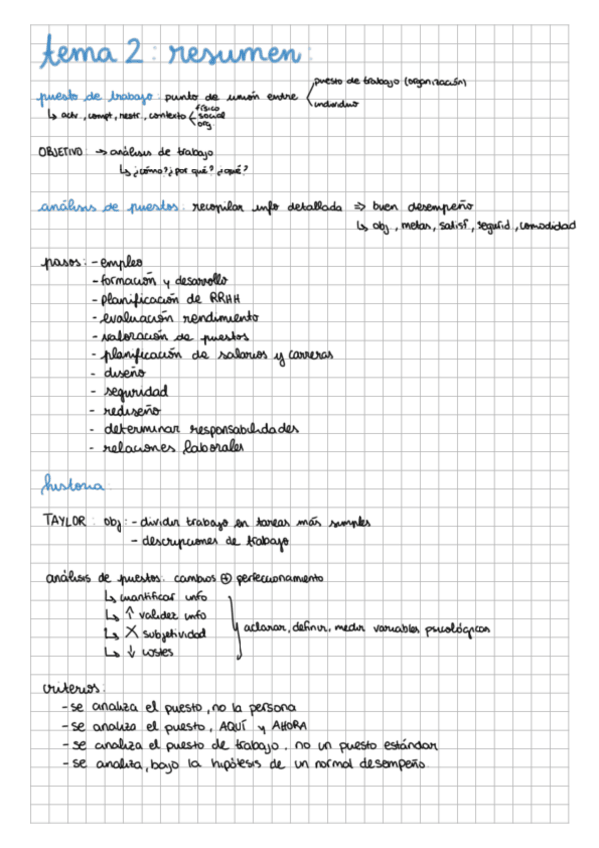 tema 2: resumen:
puesto de trabajo: punto de unión entre puesto de trabajo (organización)
individuo
↳ actv, compt, restr, contexto físico
social
org
OBJETIVO: → análisis de trabajo
↳ ¿cómo? ¿por qué? ¿qué?
análisis de puestos: recopilar info detallada ⇒ buen desempeño
↳ obj, metas, satisf, segurid, comodidad
pasos: - empleo
- formación y desarrollo
- planificación de RRHH
- evaluación rendimiento
- valoración de puestos
- planificación de salarios y carreras
- diseño
- seguridad
- rediseño
- determinar responsabilidades
- relaciones laborales
historia
TAYLOR: obj: - dividir trabajo en tareas más simples
- descripciones de trabajo
análisis de puestos: cambios ⊕ perfeccionamiento
↳ cuantificar info
↳ ↑ validez info
↳ X subjetividad
↳ ↓ costes
aclarar, definir, medir variables psicológicas
criterios:
- se analiza el puesto, no la persona
- se analiza el puesto, AQUÍ y AHORA
- se analiza el puesto de trabajo, no un puesto estándar
- se analiza, bajo la hipótesis de un normal desempeño